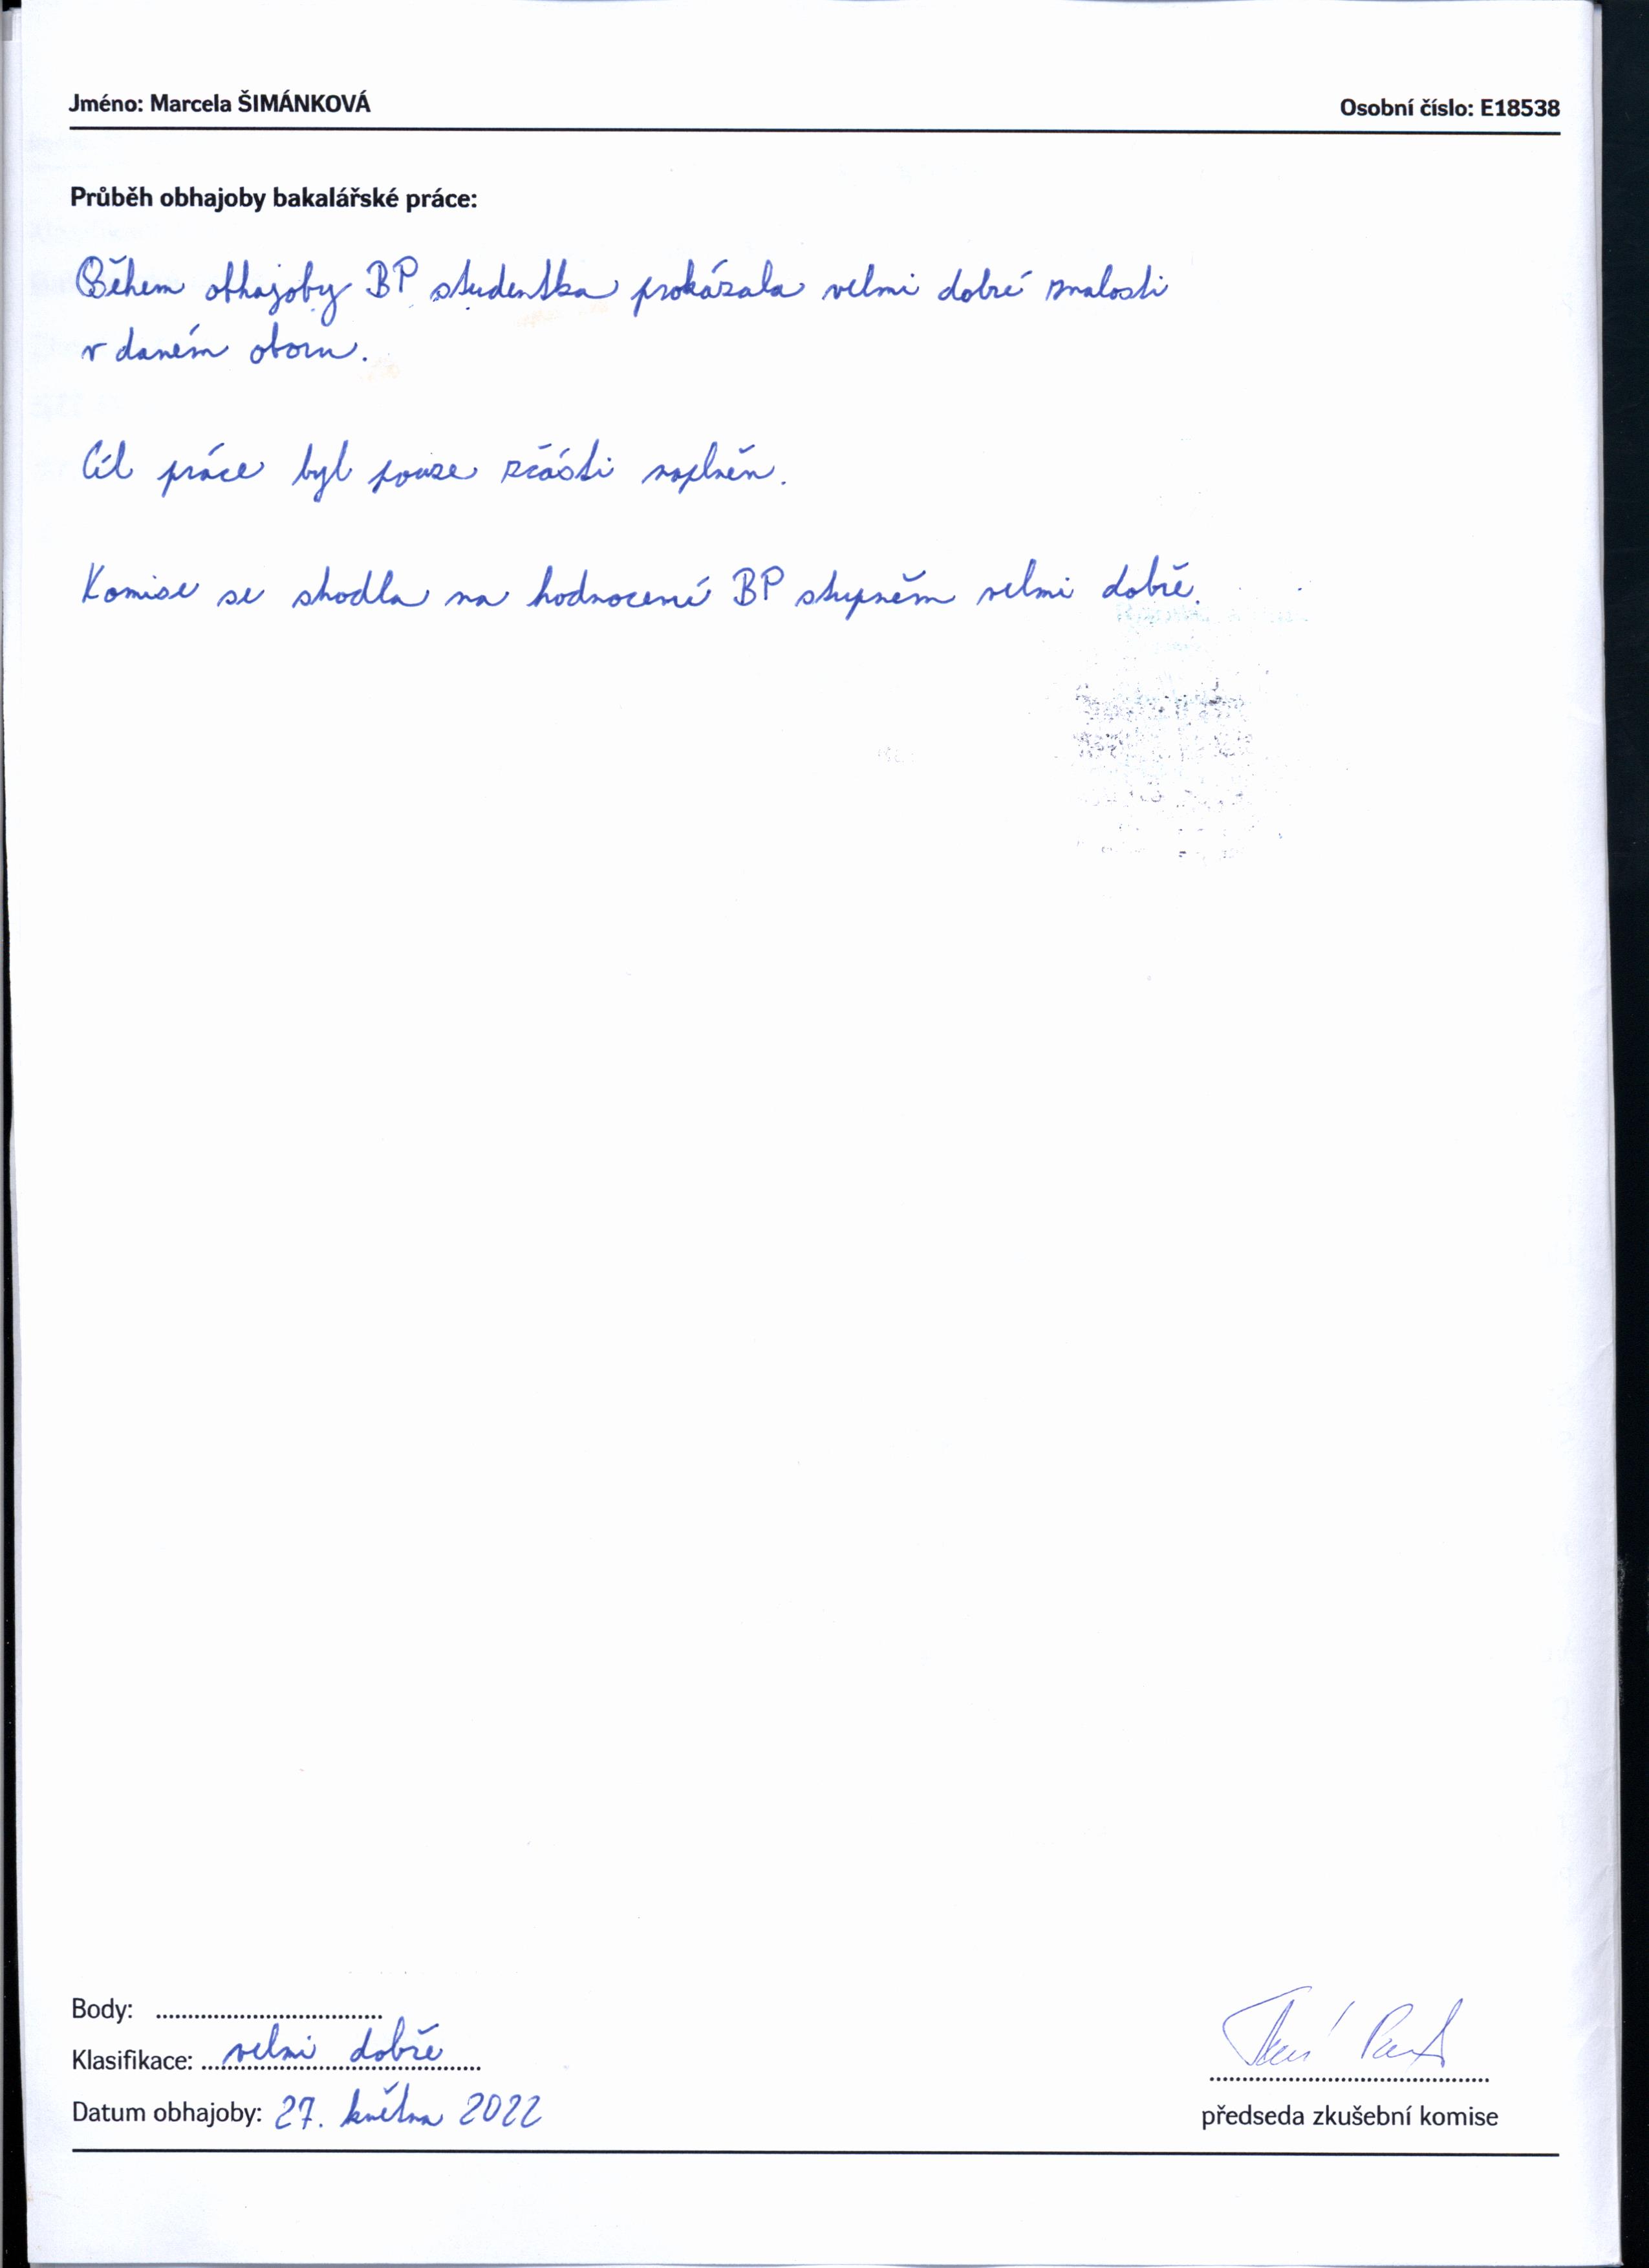 Jméno: Marcela ŠIMÁNKOVÁ
Osobní číslo: E18538
Průběh obhajoby bakalářské práce:
Během obhajoby BP studentka prokázala velmi dobré znalosti
v daném oboru.
Cíl práce byl pouze zčásti naplněn.
Komise se shodla na hodnocení BP stupněm velmi dobře.
Body: ....................................
Klasifikace: velmi dobře
Datum obhajoby: 27. května 2022
předseda zkušební komise